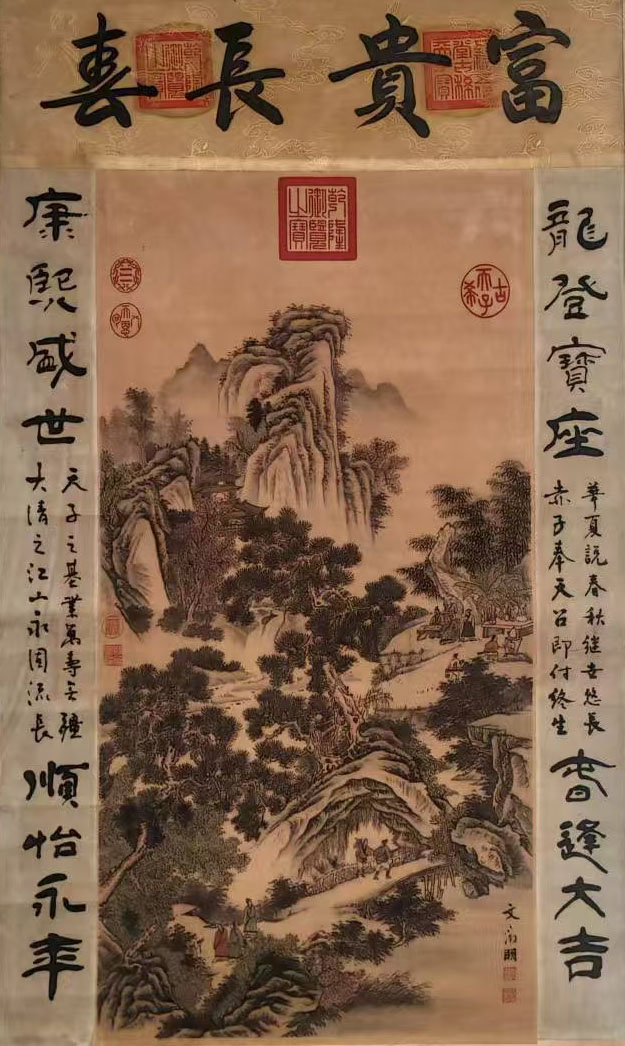 富貴長春
乾隆御覽之寶
古希天子
龍登寶座
華夏説春秋继世悠長
赤子奉天召即付终生
春逢大吉
康熙盛世
天子之基業萬壽无疆
大清之江山永固流長
順怡永年
文徵明